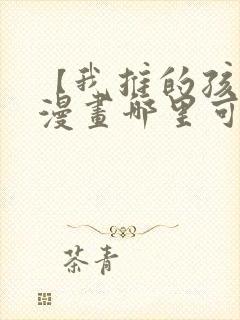 【我推的孩
漫畫哪里可
茶青